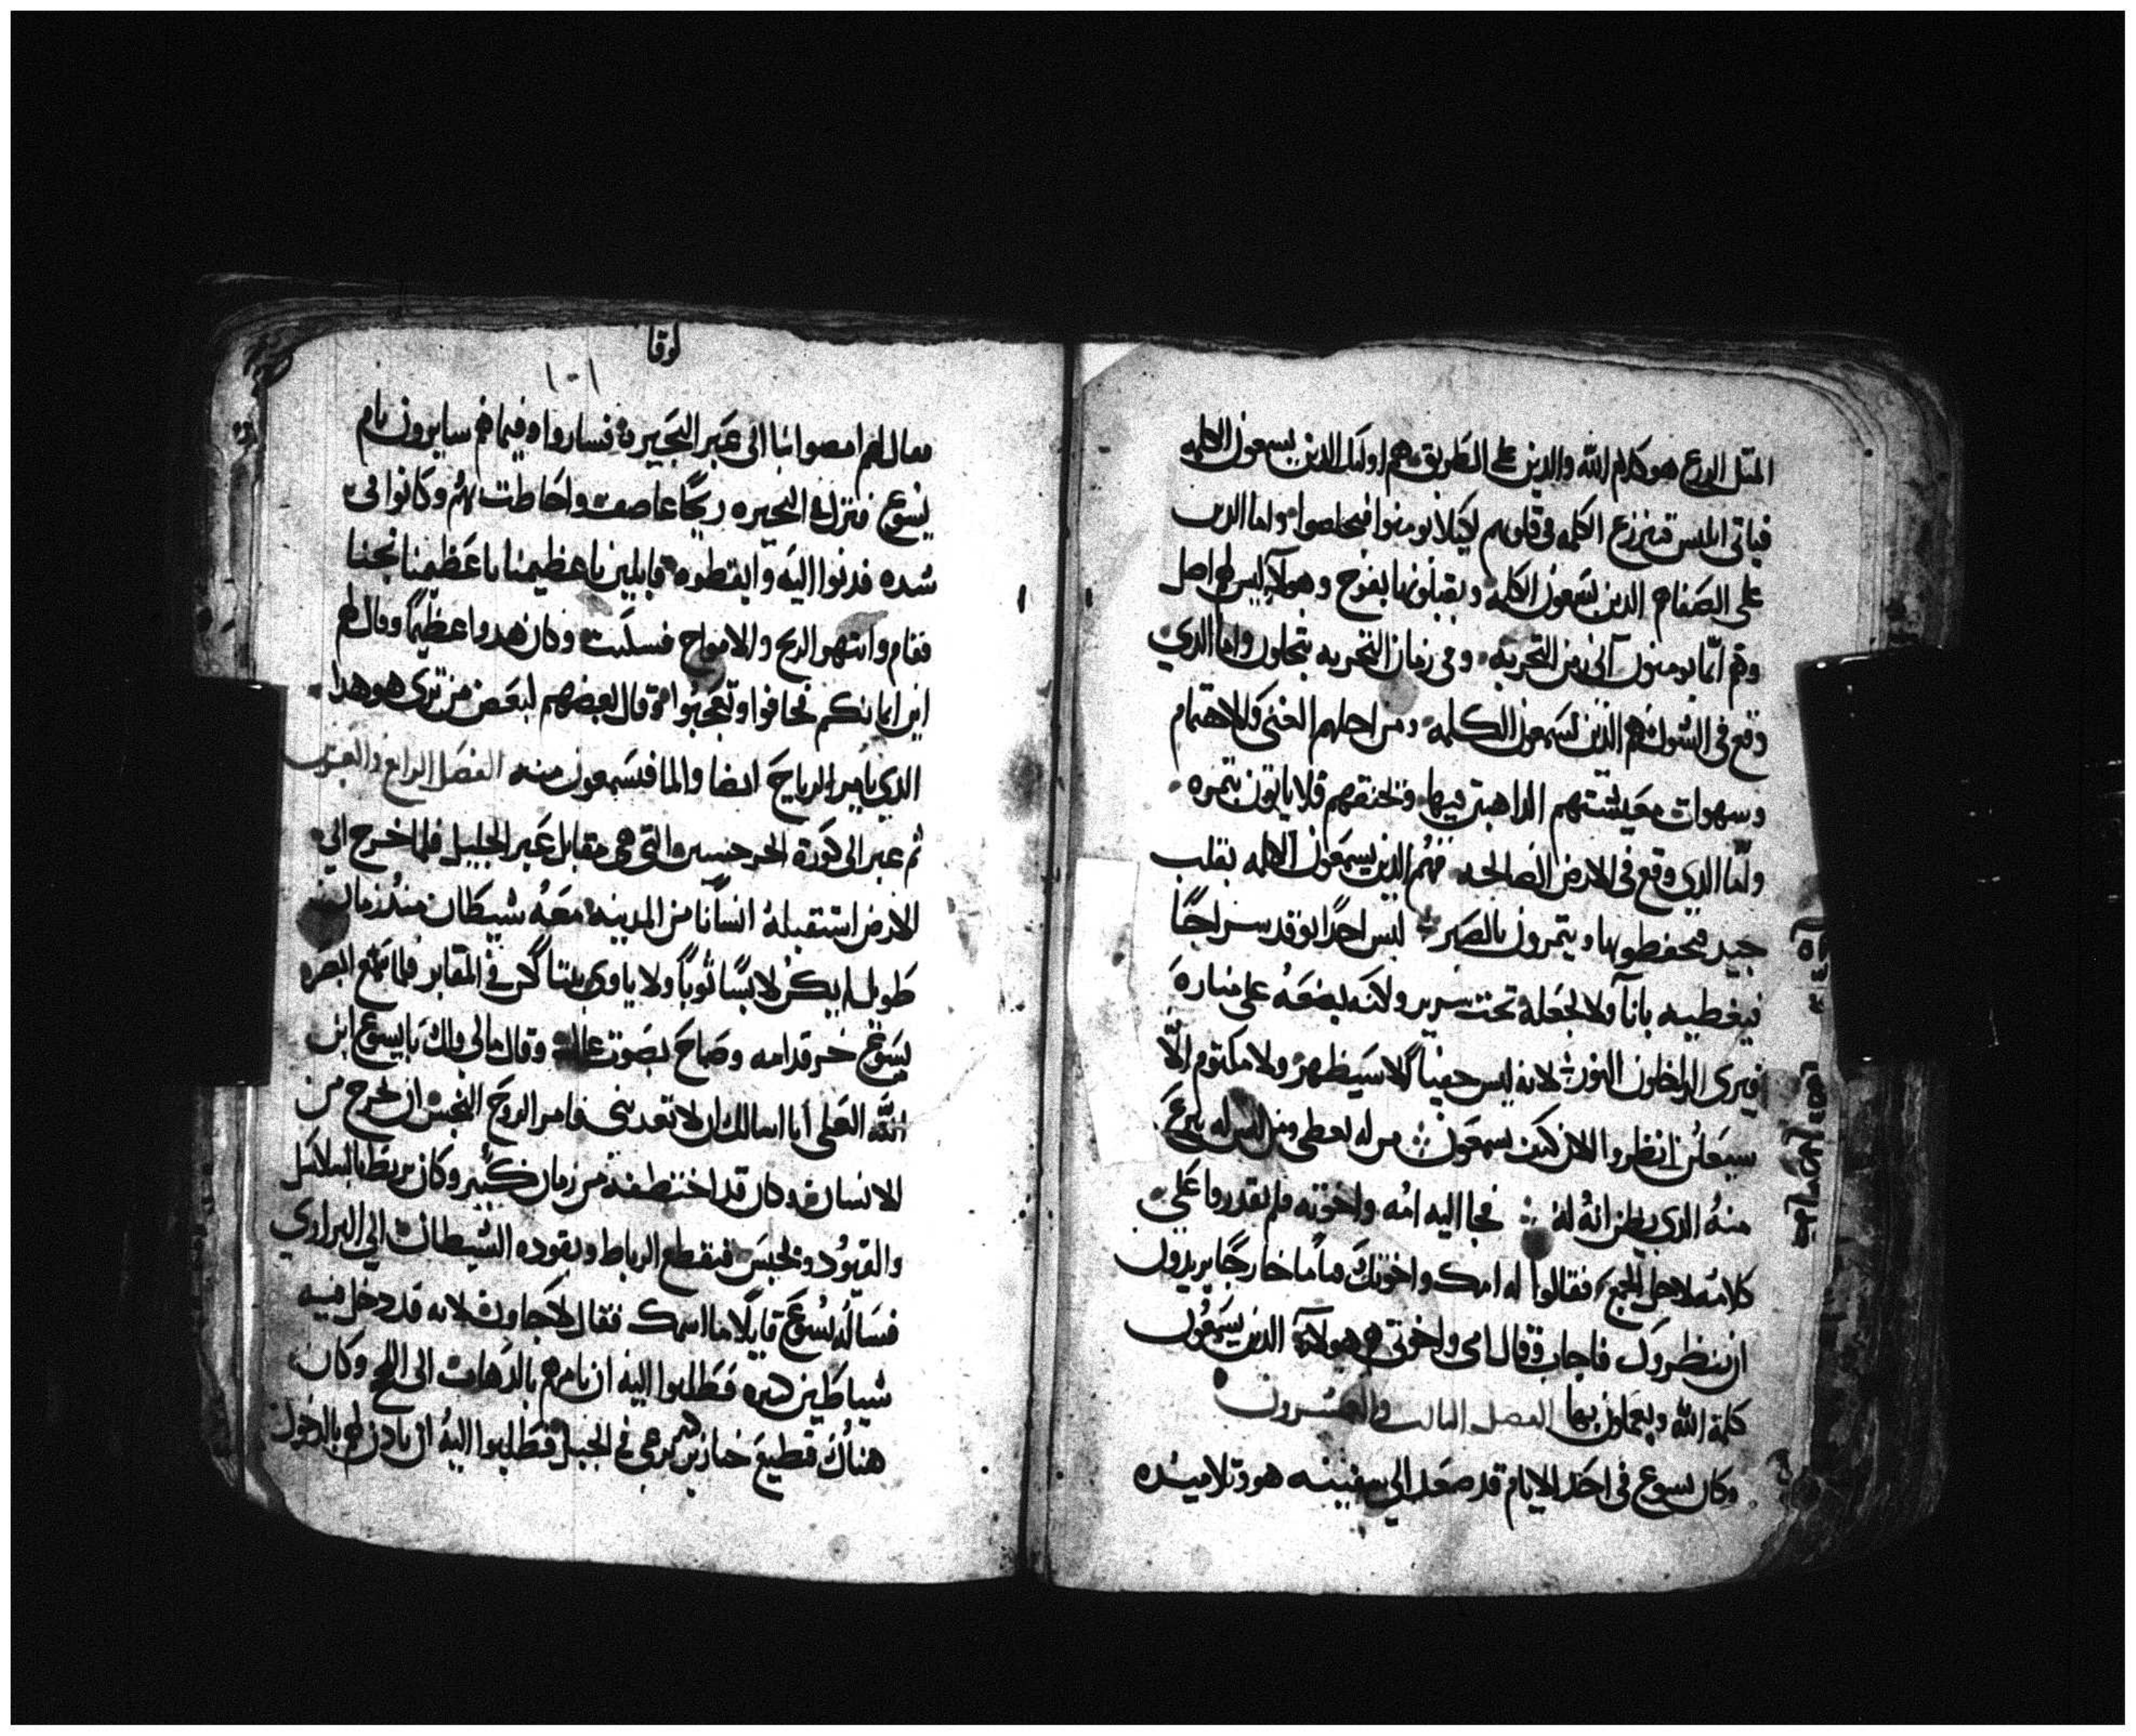 المثل الزرع هو كلام الله والدين على الطريق هم اوليك الدين يسمعون الكلمه
فياتي ابليس فينزع الكلمه من قلوبهم ليلا يومنوا فيخلصوا واما الدين
على الصفا هم الدين يسمعون الكلمه ويقبلونها بفرح وهولا ليس لهم اصل
وهم انما يومنون الى زمن التجربه وفي زمان التجربه يتحلون واما الدي
وقع في الشوك فهم الدين يسمعون الكلمه ومن اجلهم الغنى والاهتمام
وشهوات معيشتهم الداهبين فيها وتخنقهم فلا ياتون بتمره
واما الدي وقع في الارض الصالحه فهم الدين يسمعون الكلمه بقلب
جيد فيحفطونها ويتمرون بالصبر ليس احدًا يوقد سراجًا
فيغطيه بانا ولا يجعله تحت سرير ولاكنه يضعه على مناره
فيرى الداخلون النور لانه ليس خفيًا الا سيظهر ولا مكتوم الا
سيعلن انظروا الان كيف تسمعون من له يعطى ومن ليس له ينزع
منه الدي يظن انه له فجا اليه امه واخوته فلم يقدروا على
كلامه لاجل الجمع فقالوا له امك واخوتك قياما خارجًا يريدون
ان ينظروك فاجاب وقال امي واخوتي هم هولا الدين يسمعون
كلمة الله ويعملون بها الفصل التالت والعشرون
وكان يسوع في احد الايام قد صعد الى سفينه هو وتلاميده
لوقا
١٠١
فقال لهم امضوا بنا الى عبر البحيره فساروا وفيما هم سايرون نام
يسوع فنزل في البحيره ريحًا عاصف واحاطت بهم وكانوا في
شده فدنوا اليه وايقطوه قايلين يا عظيمنا يا عظيمنا نجنا
فقام وانتهر الريح والامواج فسكنت وكان هدوا عظيمًا وقال لهم
اين ايمانكم فخافوا وتعجبوا وقال بعضهم لبعض من ترى هو هدا
الدي يامر الرياح ايضا والما فيسمعون منه الفصل الرابع والعشرون
ثم عبر الى كورة الجرجسين التي هي مقابل عبر الجليل فلما خرج الى
الارض استقبله انسانًا من المدينه معه شيطان مند زمان
طويل لم يكن لابسًا ثوبًا ولا ياوى بيتا لكن في المقابر فلما ابصره
يسوع خر قدامه وصاح بصوت عال وقال مالي ولك يا يسوع ابن
الله العلي انا اسالك ان لا تعدبني فامر الروح النجس ان يخرج من
الانسان وكان قد اختطفه من زمان كبير وكان يربط بالسلاسل
والقيود ويحبس فيقطع الرباط ويقوده الشيطان الى البراري
فساله يسوع قايلًا ما اسمك فقال لاجاون لانه قد دخل فيه
شياطين كتيره فطلبوا اليه ان لا يامرهم بالدهاب الى اللج وكان
هناك قطيع خنازير كتير يرعى في الجبل فطلبوا اليه ان يادن لهم بالدخول